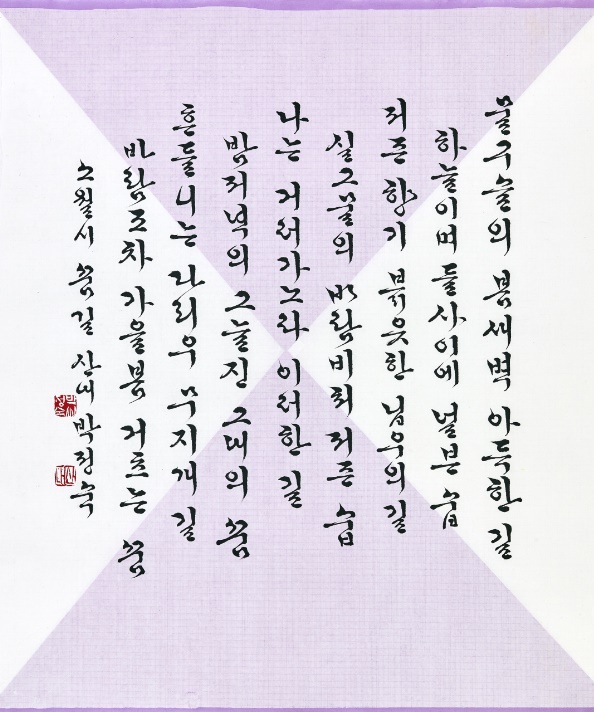 물구슬의 봄새벽 아득한 길
하늘이며 들사이에 널븐 숩
저즌 향기 붉읏한 닙우의 길
실그물의 바람비쳐 저즌 숩
나는 거러가노라 이러한 길
밤저녁의 그늘진 그대의 꿈
흔들니는 다리우 무지개 길
바람조차 가을봄 거츠는 꿈
소월시 꿈길 산내 박정숙